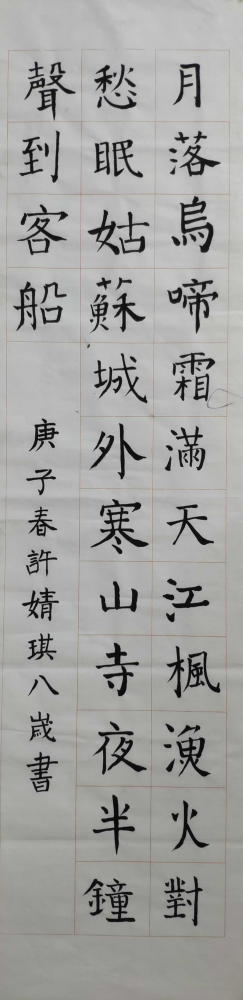 月落烏啼霜滿天江楓漁火對
愁眠姑蘇城外寒山寺夜半鐘
聲到客船
庚子春許婧琪八歲書